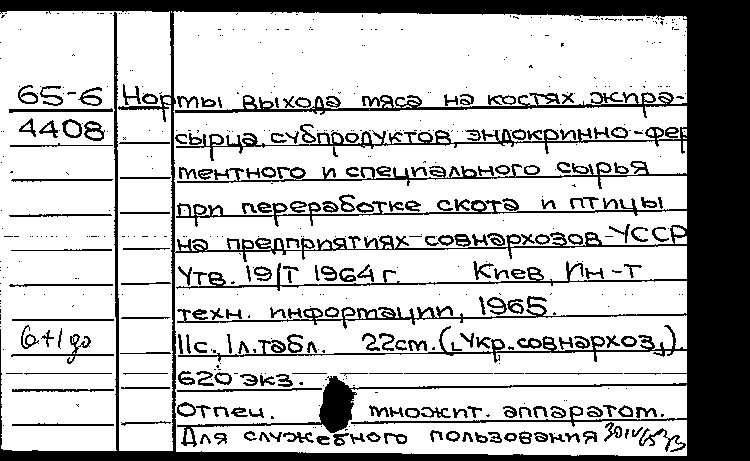 65-6 Нормы выхода мяса на костях, жира-
4408 сырца, субпродуктов, эндокринно-фер
ментного и специального сырья
при переработке скота и птицы
на предприятиях совнархозов УССР
Утв. 19/I 1964 г. Киев, Ин-т
техн. информации, 1965.
6+1 11с., 1л.табл. 22см. („Укр.совнархоз„).
620 экз.
Отпеч. множит. аппаратом.
Для служебного пользования